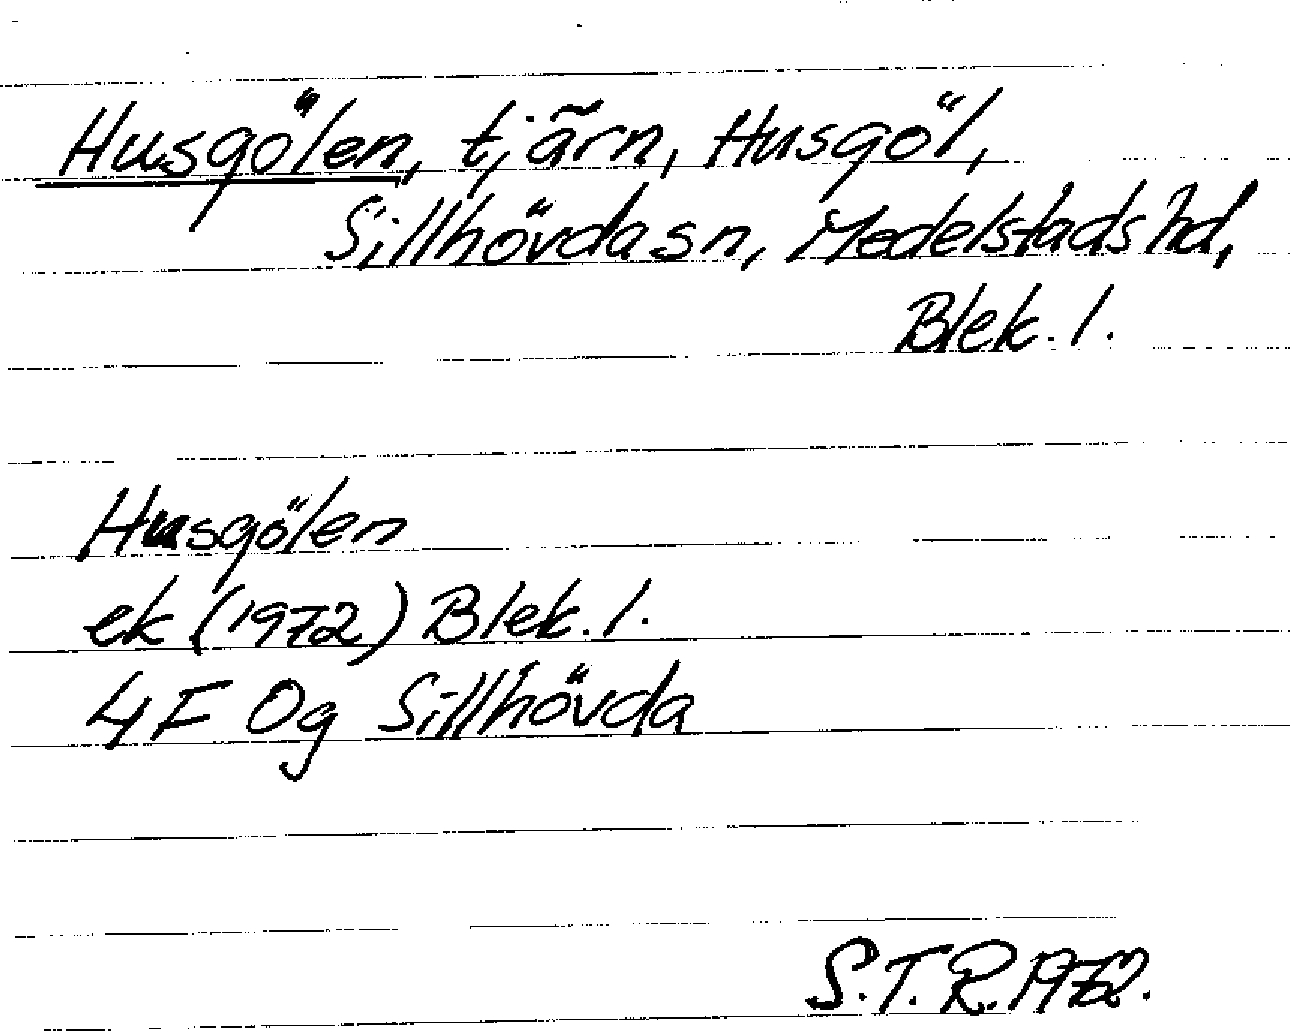 Husgölen, tjärn, Husgöl,
Sillhövda sn, Medelstads hd,
Blek. l.
Husgölen
ek (1972) Blek. l.
4F 0g Sillhövda
S.T.R. 1972.